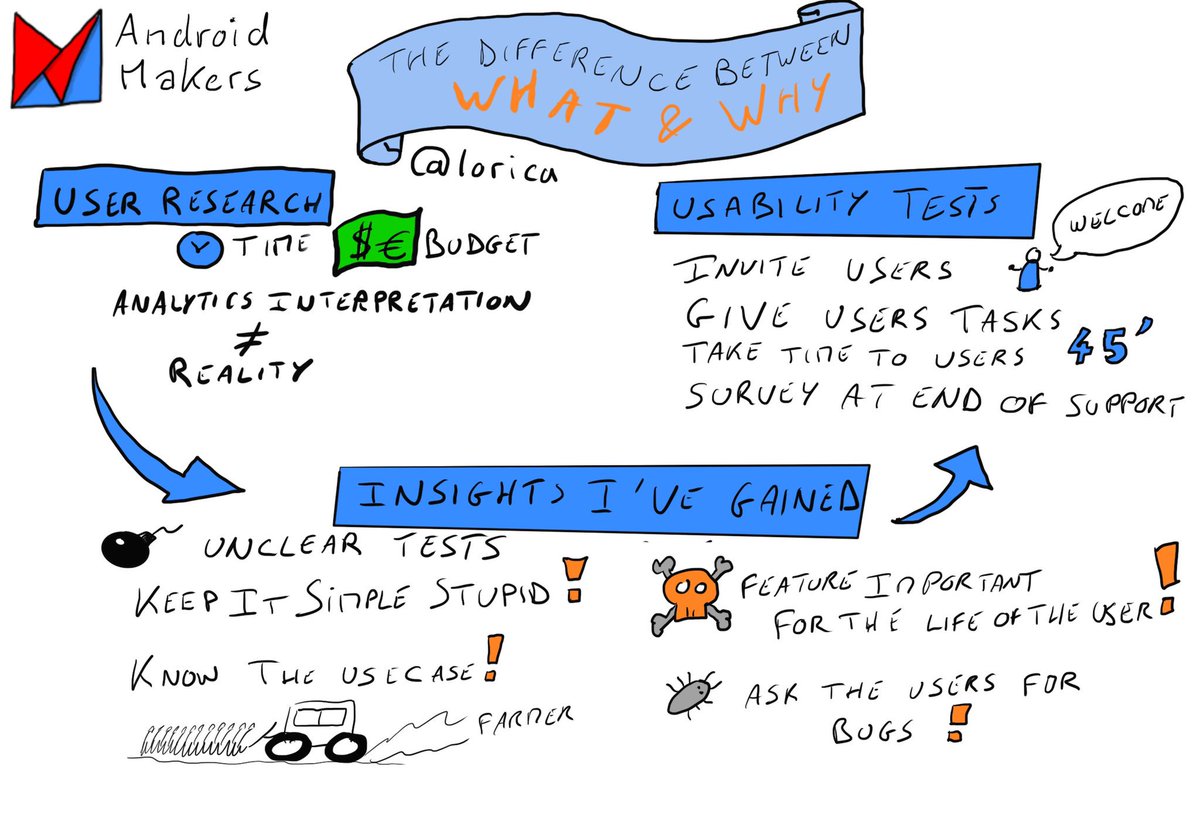 Android
Makers
THE DIFFERENCE BETWEEN
WHAT & WHY
@lorica
USER RESEARCH
TIME $€ BUDGET
ANALYTICS INTERPRETATION
≠
REALITY
USABILITY TESTS
WELCOME
INVITE USERS
GIVE USERS TASKS
TAKE TIME TO USERS 45'
SURVEY AT END OF SUPPORT
INSIGHTS I'VE GAINED
UNCLEAR TESTS
KEEP IT SIMPLE STUPID!
KNOW THE USECASE!
FARMER
FEATURE IMPORTANT
FOR THE LIFE OF THE USER!
ASK THE USERS FOR
BUGS!